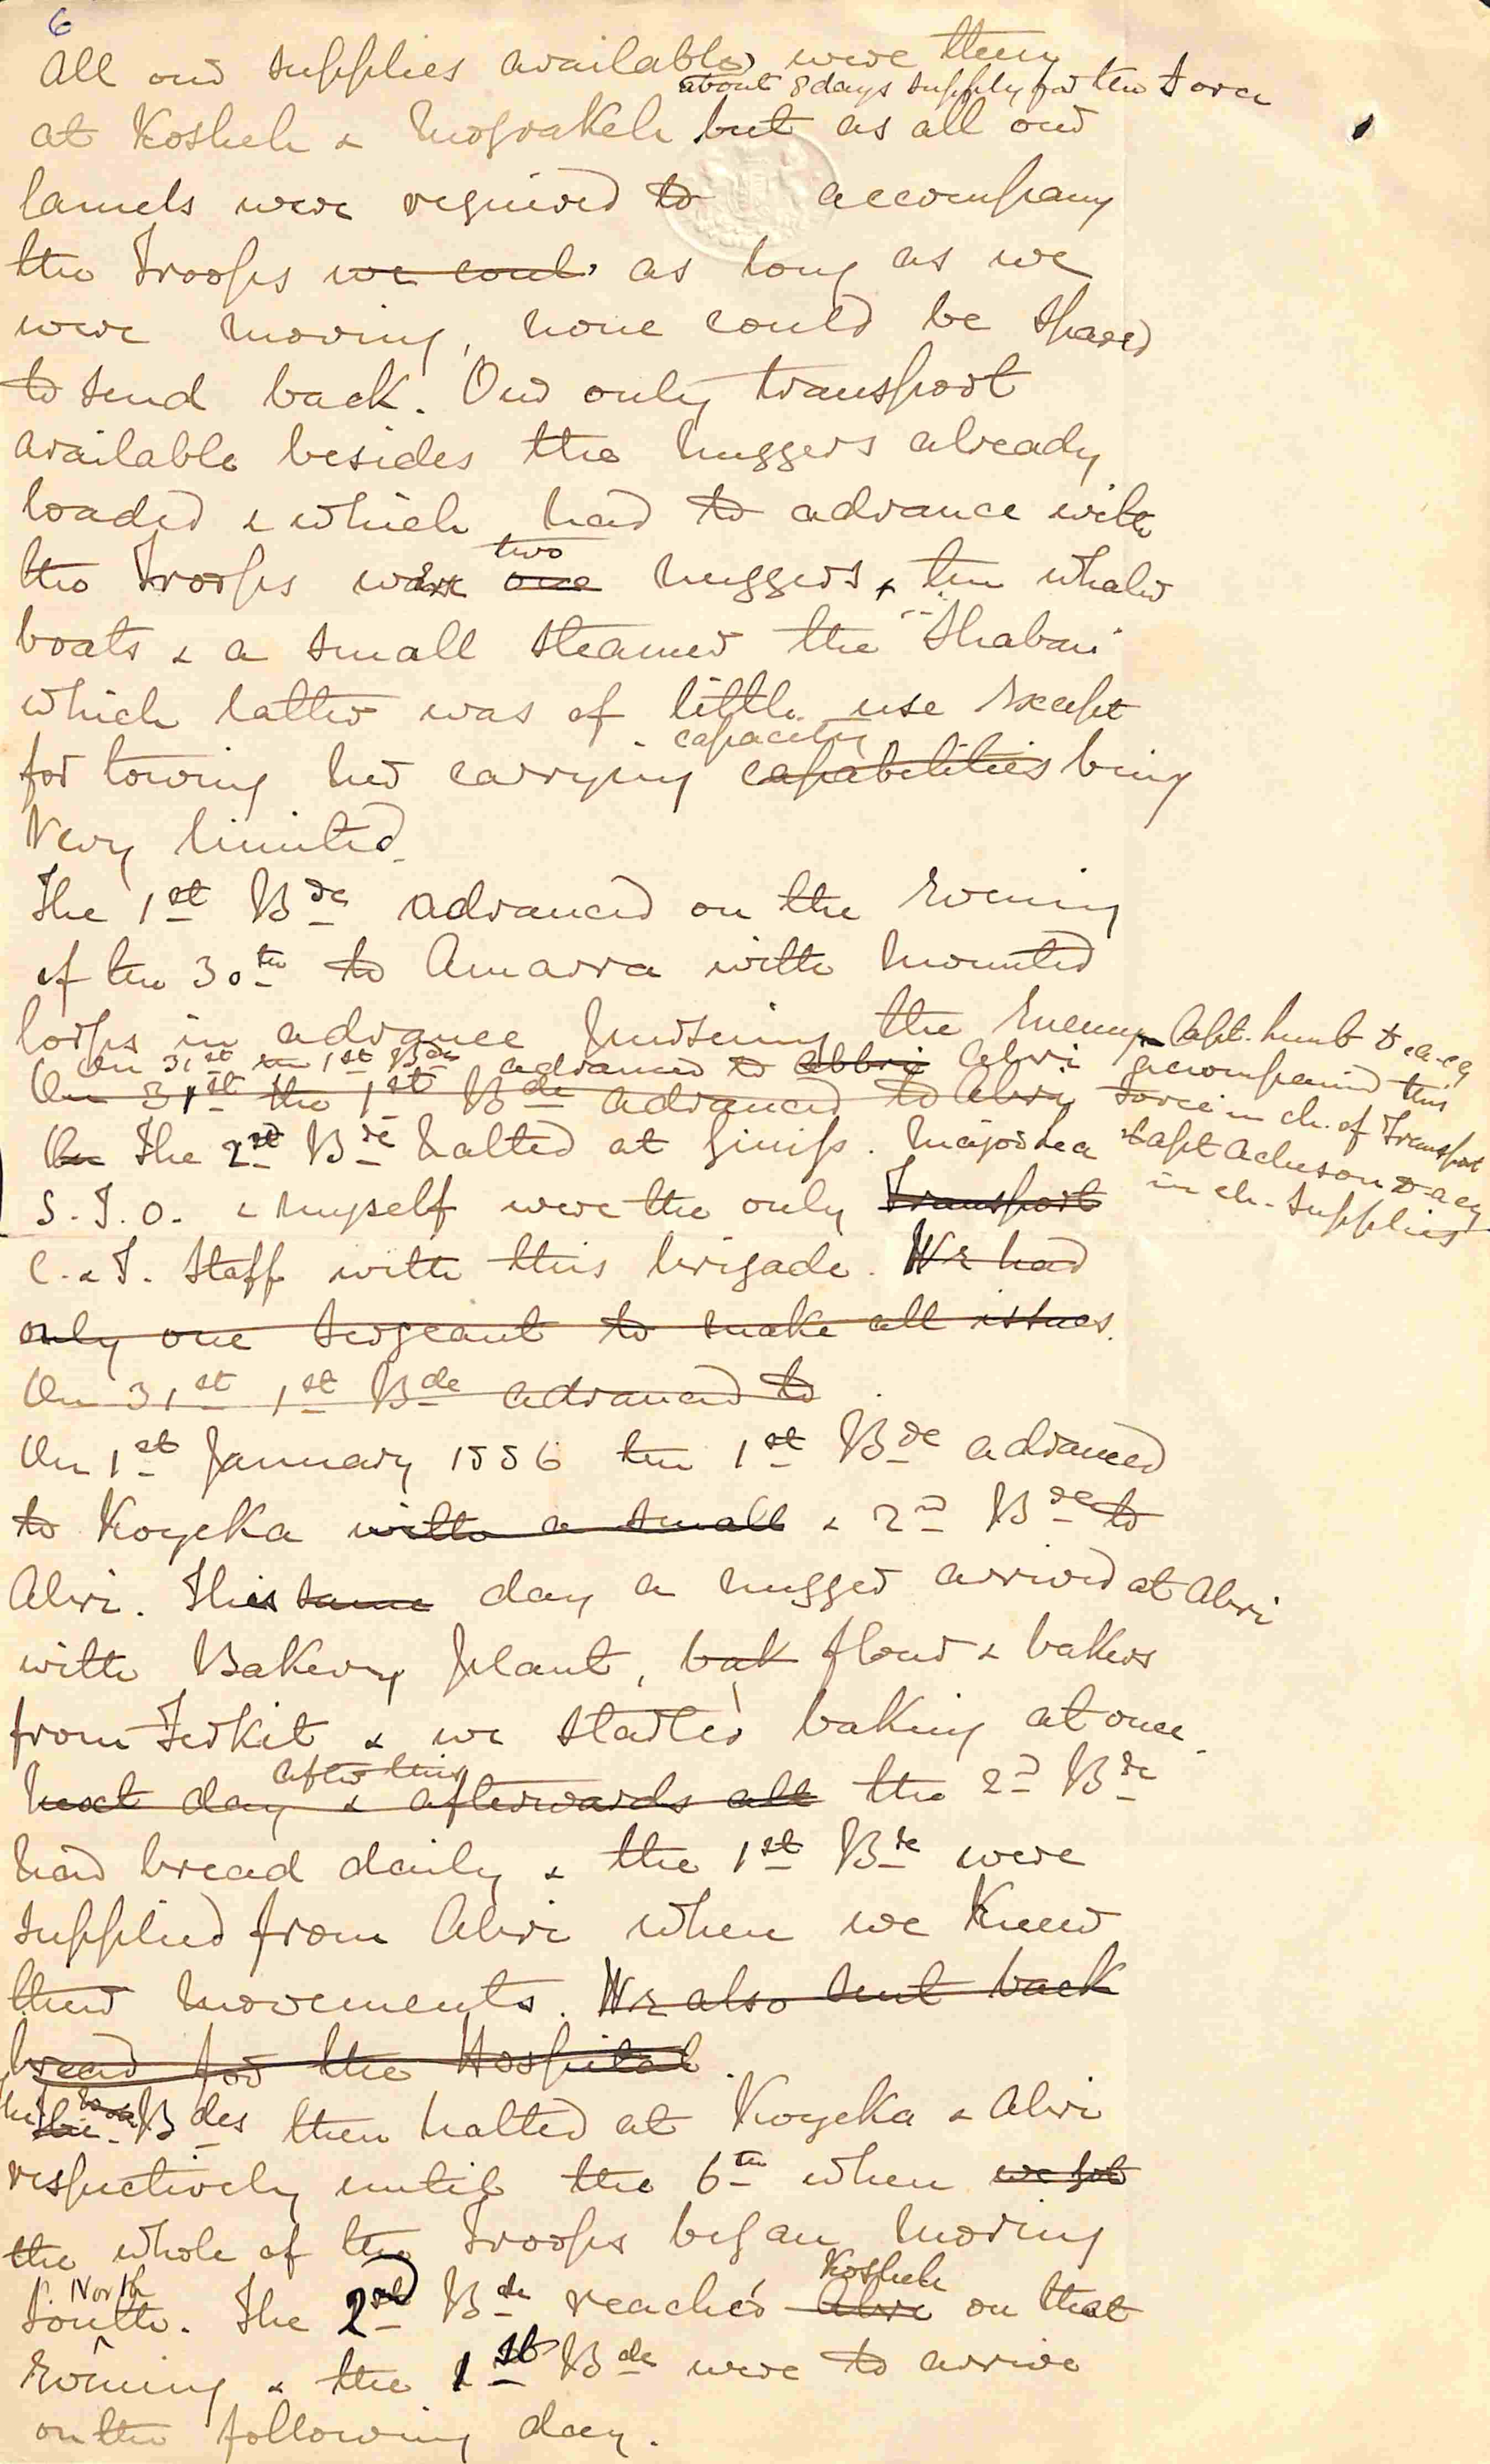 6
All our supplies available were then
about 8 days supply for the Force
at Kosheh & Mograkeh but as all our
Camels were required to accompany
the Troops we coul as long as we
were moving, none could be spared
to send back. Our only transport
available besides the nuggers already
loaded & which had to advance with
two
the Troops were one nuggers, & ten whaler
boats & a small steamer the "Shaban"
which latter was of little use except
capacity
for towing her carrying capabilities being
very limited.
The 1st Bde advanced on the evening
of the 30th to Amarra with mounted
Corps in advance pursuing the Enemy
Capt. Lunt D.A.C.G accompanied this Force in ch. of Transport
& Capt Acheson D.A.C.G in ch. supplies
On 31st the 1st Bde advanced to Abbri Abri
On 31st the 1st Bde advanced to Abri
On The 2nd Bde halted at Giniss. Major Rea
S.T.O. & myself were the only Transport
C. & T. Staff with this brigade. We had
only one Sergeant to make all issues.
On 31st 1st Bde advanced to
On 1st January 1886 the 1st Bde advanced
to Koyeka with a small & 2nd Bde to
Abri. This same day a nugger arrived at Abri
with Bakery plant, bak flour & bakers
from Ferkit & we started baking at once.
After this
next day & afterwards all the 2nd Bde
had bread daily & the 1st Bde were
supplied from Abri when we knew
their movements. We also sent back
bread for the Hospital.
The Bdes then halted at Koyeka & Abri
respectively until the 6th when we got
the whole of the Troops began moving
North Kosheh
South. The 2nd Bde reached Abri on that
Evening & the 1st Bde were to arrive
on the following day.